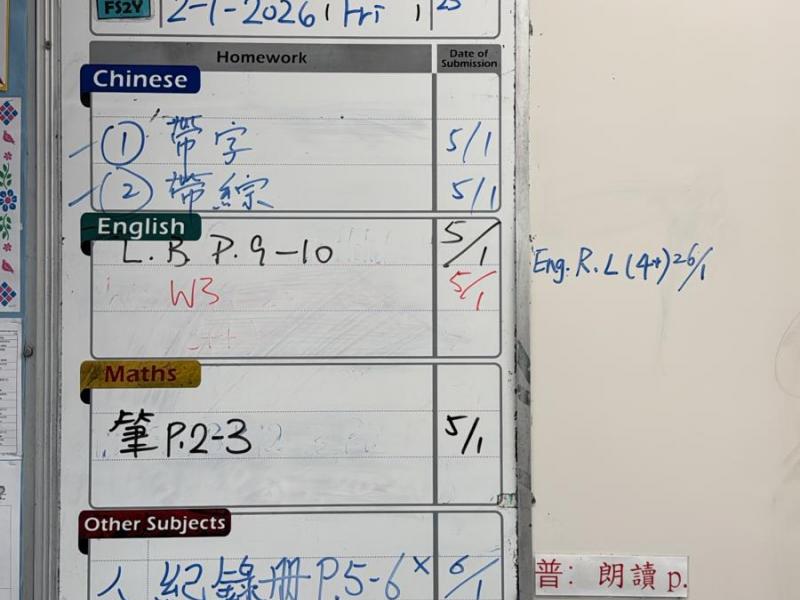 FS2Y
2-1-2026 (Fri)
Homework
Date of Submission
Chinese
① 帶字 5/1
② 帶綜 5/1
English
L.B P.9-10 5/1
W3 5/1
Eng. R.L (4+) 26/1
Maths
筆 P.2-3 5/1
Other Subjects
人 紀錄册 P.5-6 x 6/1
普: 朗讀 p.